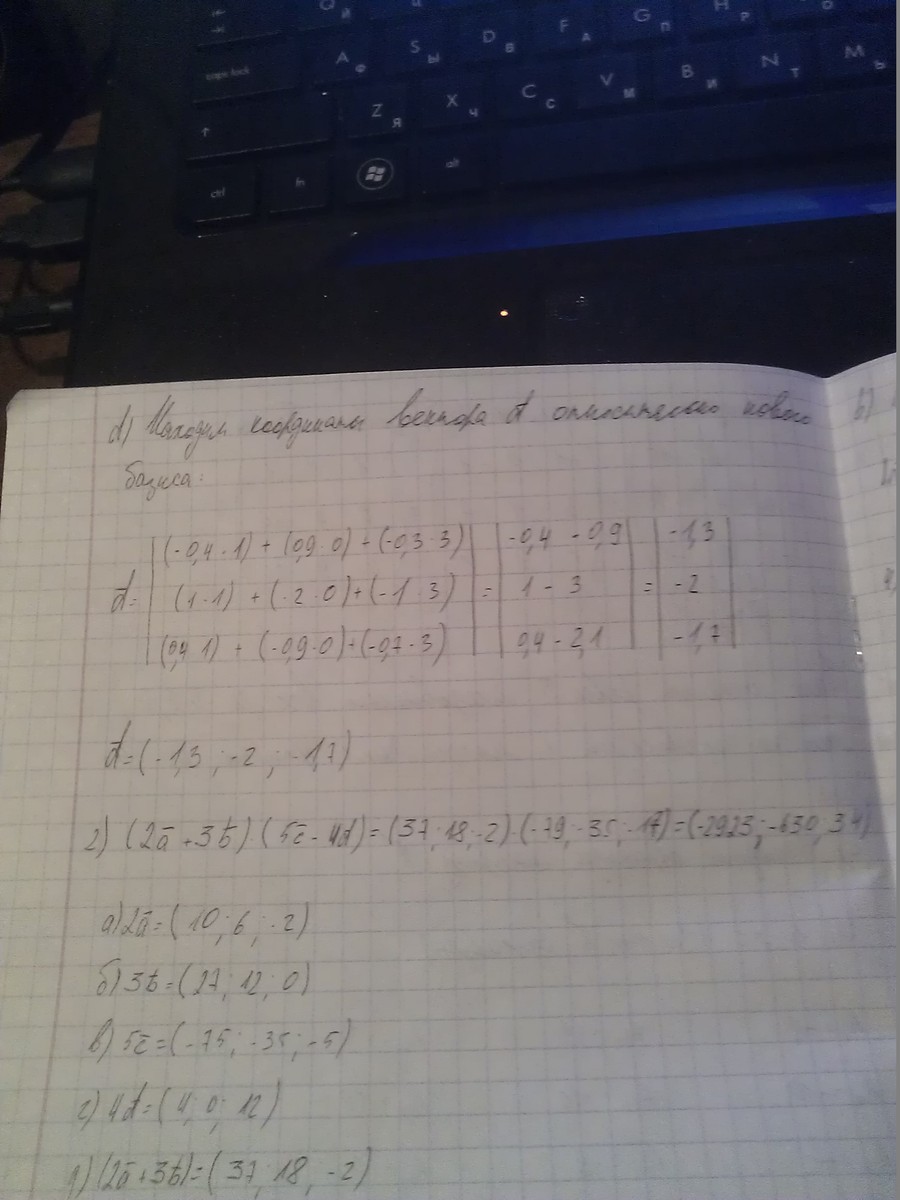 О Й Ц
caps lock A Ф S Ы D В F А G П H Р О
Z Я X Ч C С V М B И N Т M Ь
ctrl fn alt
d) Находим координаты вектора d̄ относительно нового
базиса:
d̄= |(-0,4·1) + (0,9·0) + (-0,3·3)| |-0,4 -0,9| |-1,3|
|(1·1) + (-2·0)+(-1·3)| = |1 - 3| = |-2|
|(0,4·1) + (-0,9·0)+(-0,7·3)| |0,4 - 2,1| |-1,7|
d̄=(-1,3 ; -2 ; -1,7)
2) (2ā+3b̄)·(5c̄-4d̄)=(37; 18; -2)·(-79; -35; -17)=(-2923; -630; 34)
а) 2ā=(10; 6; -2)
б) 3b̄=(27; 12; 0)
в) 5c̄=(-75; -35; -5)
г) 4d̄=(4; 0; 12)
д) (2ā+3b̄)=(37; 18; -2)
b)